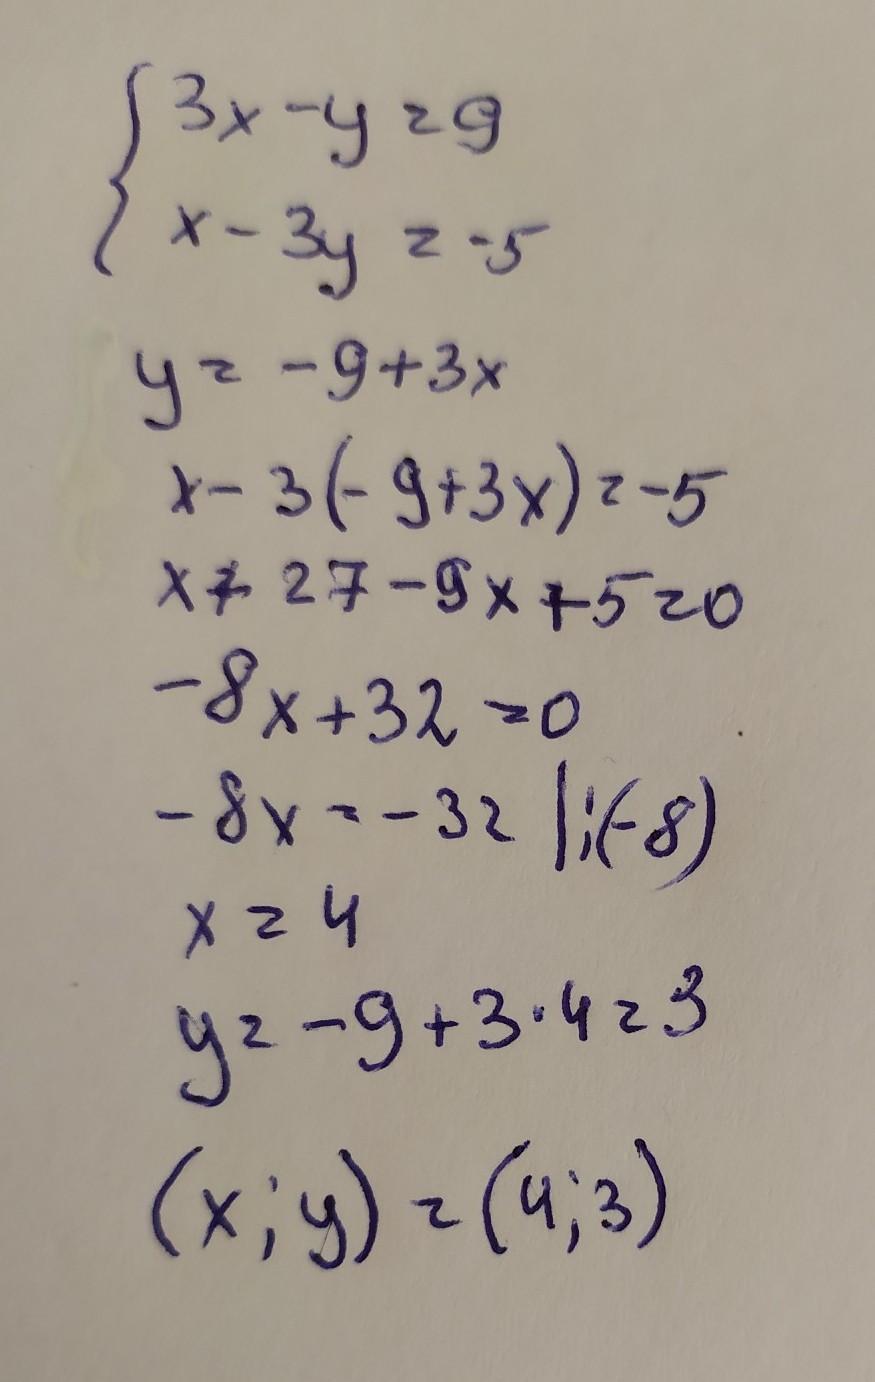 { 3x - y = 9
x - 3y = -5
y = -9 + 3x
x - 3(-9 + 3x) = -5
x + 27 - 9x + 5 = 0
-8x + 32 = 0
-8x = -32 |:(-8)
x = 4
y = -9 + 3·4 = 3
(x; y) = (4; 3)